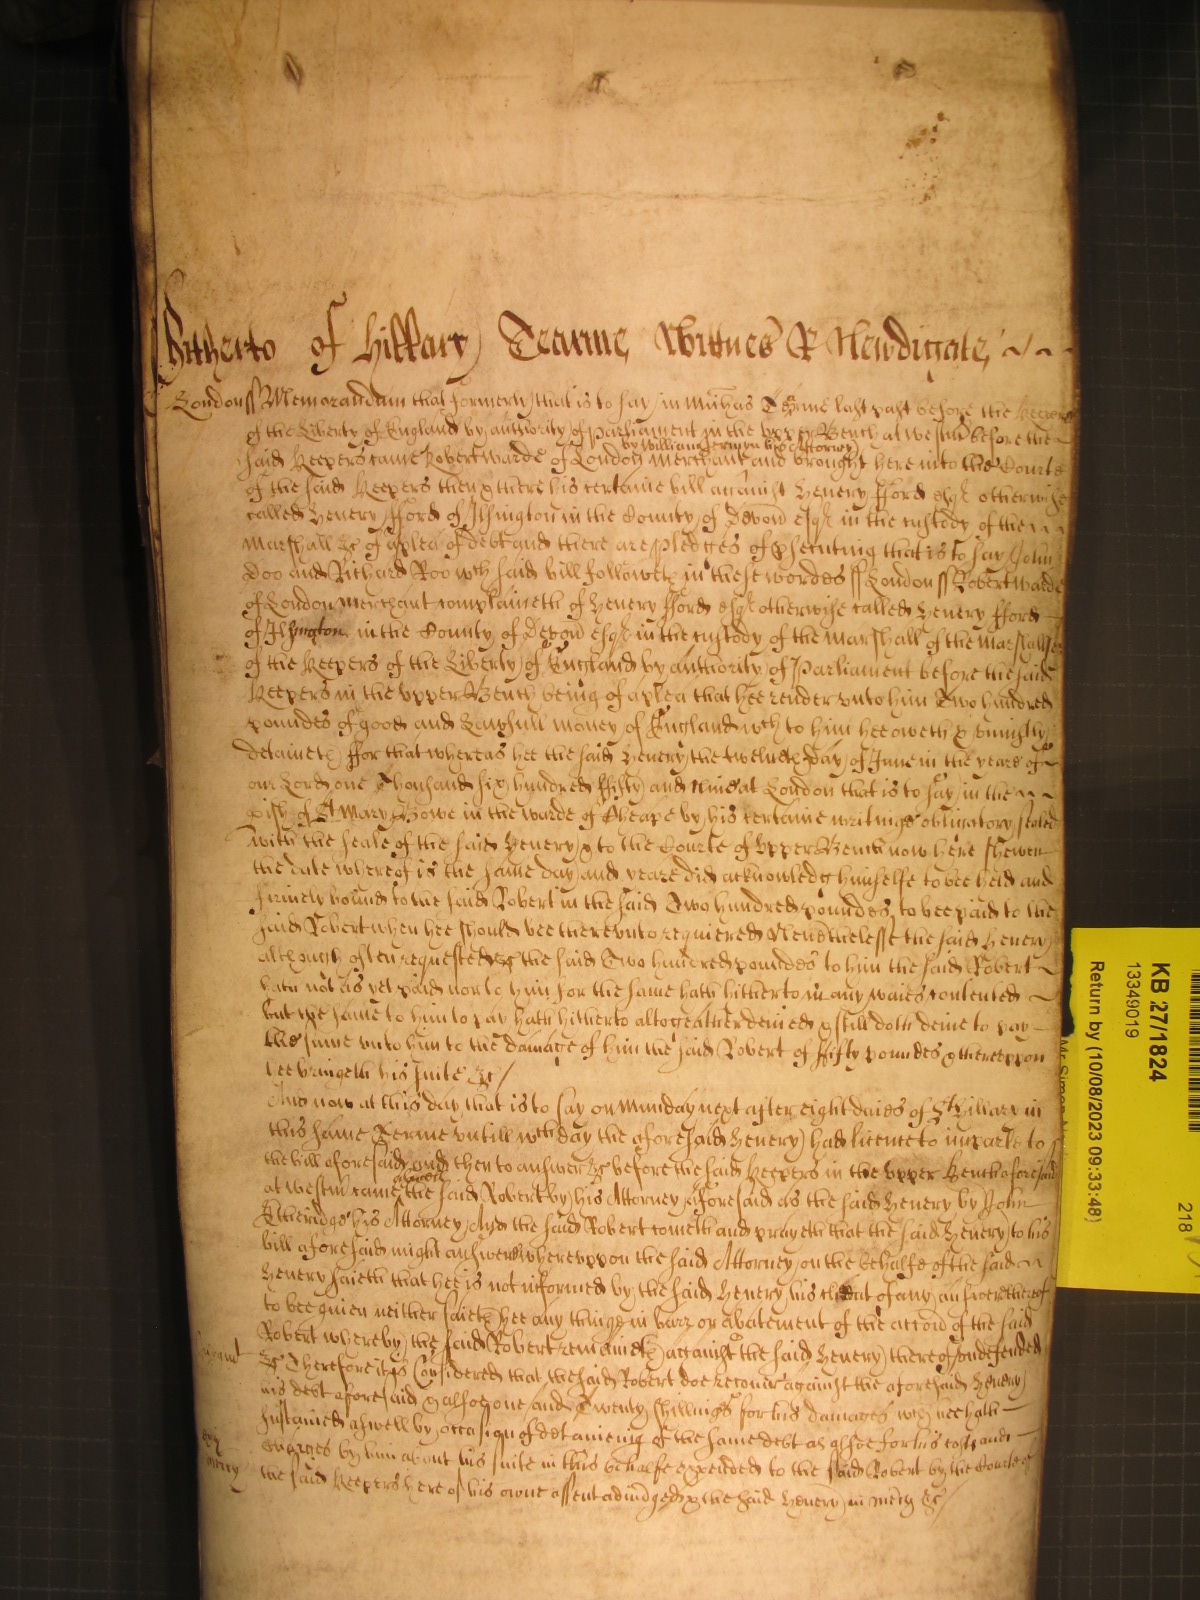 Hitherto of Hillary Tearme, Witnes R Newdigate,
London ss Memorandum that formerly that is to say in Michas Terme last past before the Keepers
of the Liberty of England by authority of Parliament in the upper Bench at Westm before the
by William Jermyn his Attorney
said Keepers came Robert Warde of London Merchant and brought here into the Courte
of the said Keepers then & there his certaine bill against Henery fford esqr otherwise
called Henery fford of Ilsington in the County of Devon esqr in the custody of the
Marshall &c of a plea of debt and there are pledges of psecuting that is to say John
Doo and Richard Roo wch said bill followeth in these wordes ss London ss Robert Warde
of London Merchant complaineth of Henery fford esqr otherwise called Henery fford
of Ilsington in the County of Devon esqr in the custody of the Marshall of the Marshallsea
of the Keepers of the Liberty of England by authority of Parliament before the said
Keepers in the upper Bench being of a plea that hee render unto him Two hundred
poundes of good and Lawfull money of England wch to him hee oweth & uniustly
detaineth ffor that whereas hee the said Henery the twelveth day of June in the yeare of
our Lord one Thousand six hundred ffifty and nine at London that is to say in the
pish of St Mary Bowe in the warde of Cheape by his certaine writinge obligatory sealed
with the seale of the said Henery & to the Courte of upper Bench now here shewen
the date whereof is the same day and yeare did acknowledg himselfe to bee held and
firmely bound to the said Robert in the said Two hundred poundes to bee paid to the
said Robert when hee should bee thereunto requiered Neverthelesse the said Henery
although often requested &c the said Two hundred poundes to him the said Robert
hath not as yet paid nor to him for the same hath hitherto in any waies contented
but the same to him to pay hath hitherto altogeather denied & still doth denie to pay
the same unto him to the damage of him the said Robert of ffifty poundes & thereupon
hee bringeth his suite &c
And now at this day that is to say on Munday next after eight daies of St Hillary in
this same Terme untill wch day the aforesaid Henery had licence to imparle to
the bill aforesaid and then to answer &c before the said Keepers in the upper Bench aforesaid
at Westm came the said Robert by his Attorney aforesaid as the said Henery by John
Etheridge his Attorney And the said Robert cometh and prayeth that the said Henery to his
bill aforesaid might answer &c whereuppon the said Attorney on the behalfe of the said
Henery saieth that hee is not informed by the said Henery his client of any answer thereof
to bee given neither saieth hee any thinge in barr or abatement of the accon of the said
Robert whereby the said Robert remaineth against the said Henery thereof undefended
&c Therefore it is Considered that the said Robert doe recover against the aforesaid Henery
his debt aforesaid & alsoe one and Twenty shillings for his damages wch hee hath
sustained aswell by occasion of detaineing of the same debt as alsoe for his costs and
charges by him about his suite in this behalfe expended to the said Robert by the Courte of
the said Keepers here of his owne assent adiudged & the said Henery in mercy &c
mercy
KB 27/1824
13349019
Return by (10/08/2023 09:33:48)
218